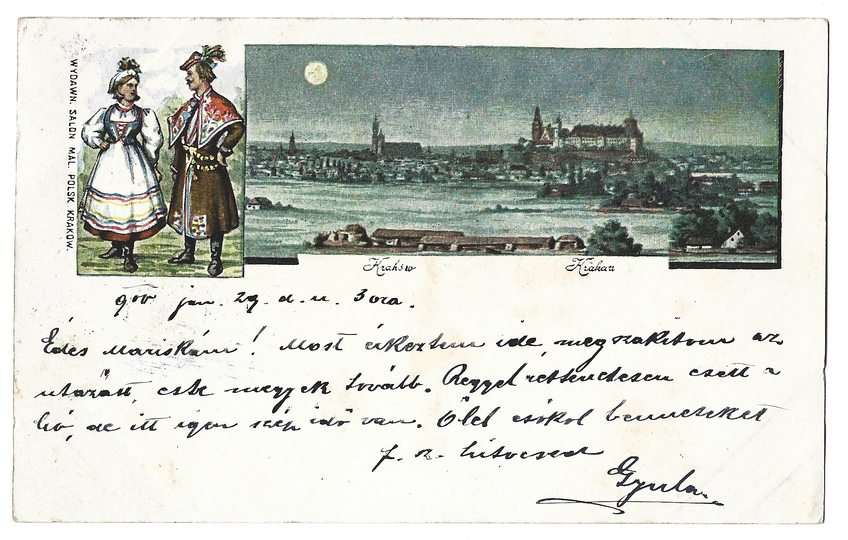 WYDAWN. SALON MAL. POLSK. KRAKOW.
Kraków
Krakau
900 jan. 29. d. u. 3 ora.
Édes Mariskám! Most érkeztem ide, megszakitom az
utazást, este megyek tovább. Reggel rettenetesen esett a
hó, de itt igen szép idő van. Ölel csókol benneteket
hitvesed
Gyula